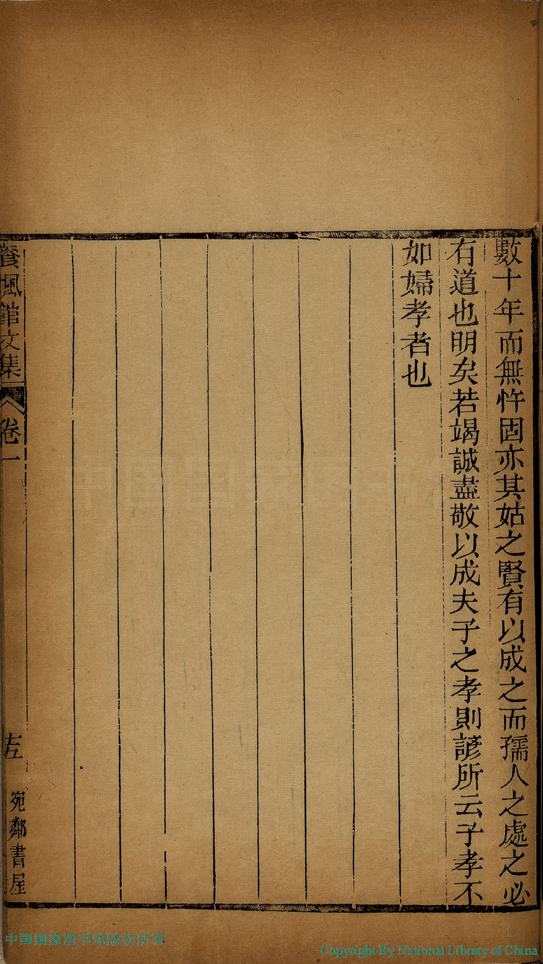 數十年而無忤固亦其姑之賢有以成之而孺人之處之必
有道也明矣若竭誠盡敬以成夫子之孝則諺所云子孝不
如婦孝者也
養楓館文集
卷一
十五
宛鄰書屋
Copyright By National Library of China